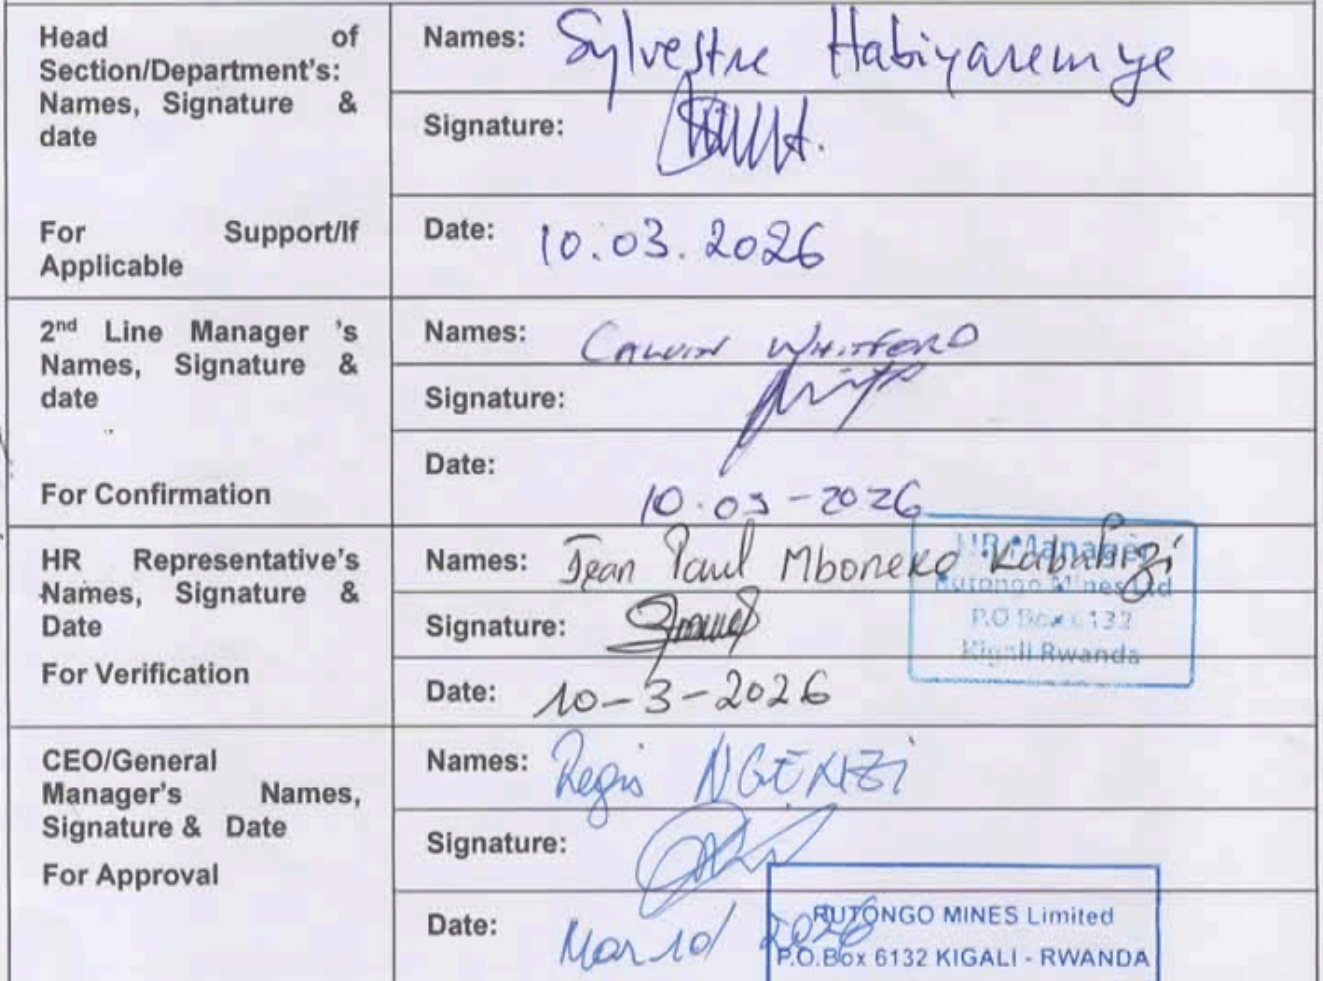 Head of
Section/Department's:
Names, Signature &
date
For Support/If
Applicable
Names: Sylvestre Habiyaremye
Signature:
Date: 10.03.2026
2nd Line Manager 's
Names, Signature &
date
For Confirmation
Names: CALVIN WHITFORD
Signature:
Date:
10.03-2026
HR Representative's
Names, Signature &
Date
For Verification
Names: Jean Paul Mboneko Kabahizi
Signature:
Date: 10-3-2026
HR Manager
Rutongo Mines Ltd
P.O Box 6132
Kigali Rwanda
CEO/General
Manager's Names,
Signature & Date
For Approval
Names: Regis NGENZI
Signature:
Date: Mar 10/ 2026
RUTONGO MINES Limited
P.O.Box 6132 KIGALI - RWANDA